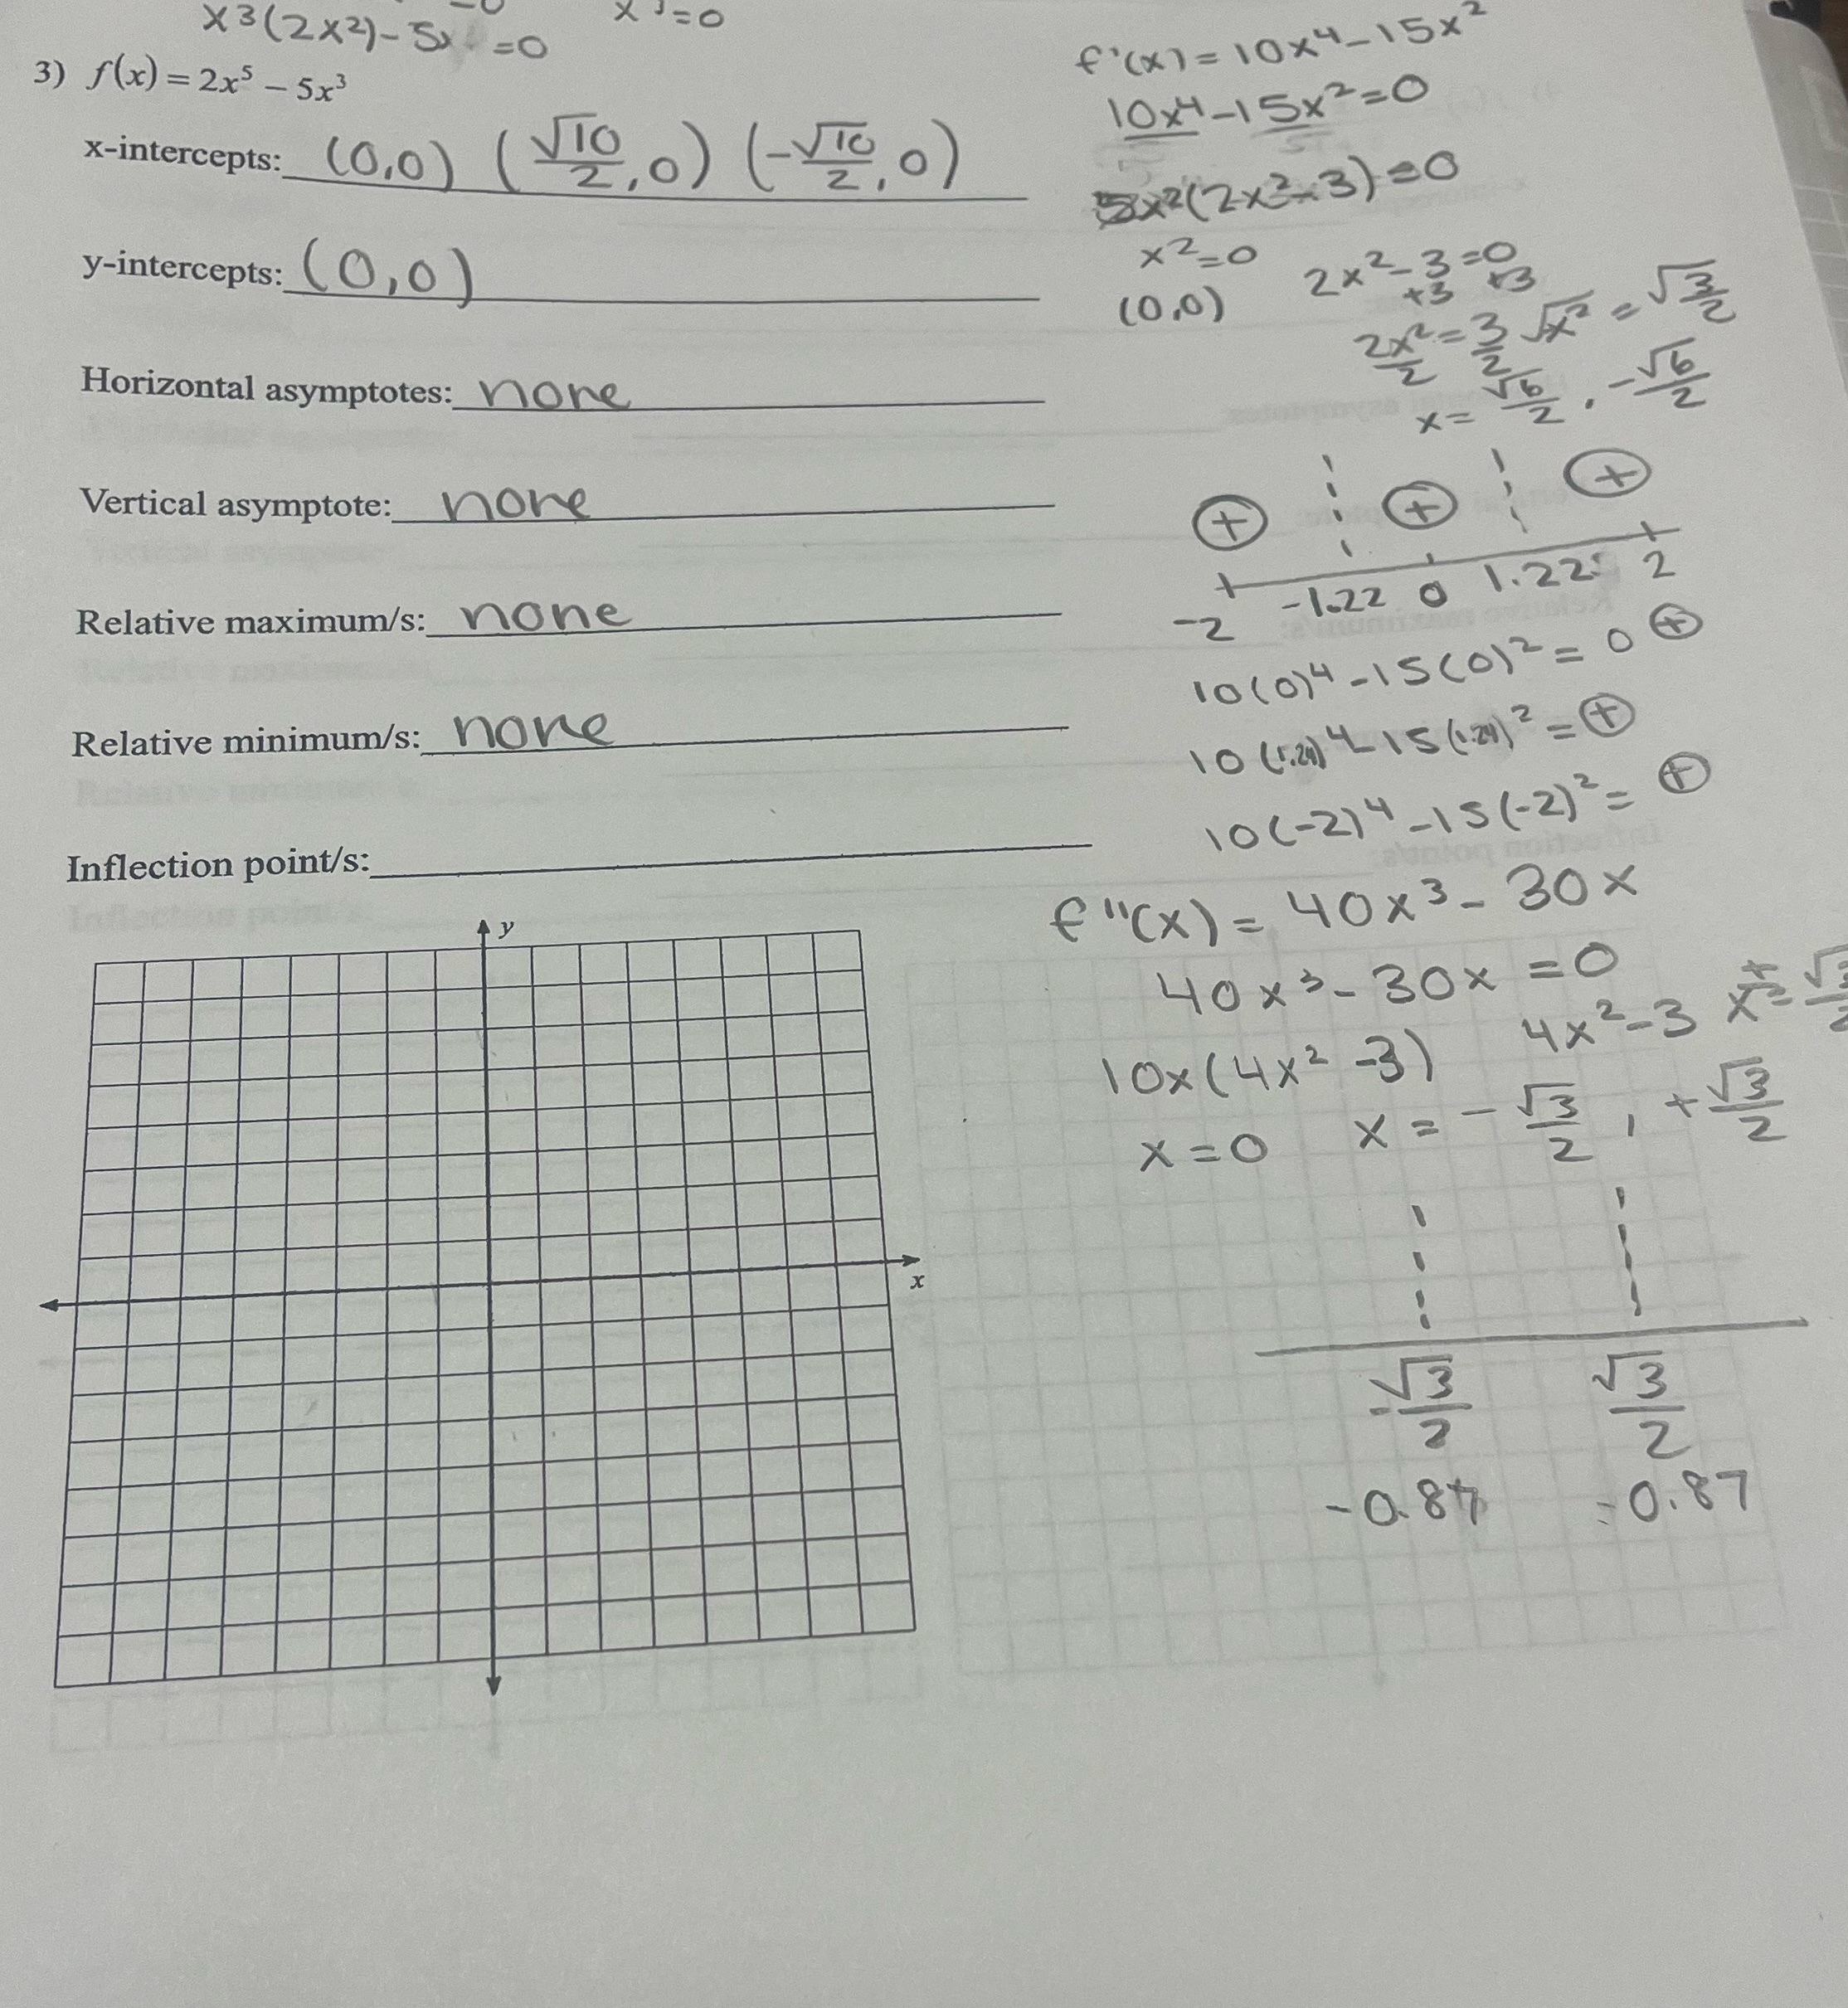 x³(2x²)-5x =0
x³=0
3) f(x) = 2x⁵ − 5x³
x-intercepts: (0,0) (√10/2, 0) (-√10/2, 0)
y-intercepts: (0,0)
Horizontal asymptotes: none
Vertical asymptote: none
Relative maximum/s: none
Relative minimum/s: none
Inflection point/s:
y
x
f'(x) = 10x⁴ - 15x²
10x⁴ - 15x² = 0
5x²(2x² - 3) = 0
x² = 0 2x² - 3 = 0
(0,0) +3 +3
2x²/2 = 3/2 √x² = √3/2
x = √6/2 , -√6/2
+ + +
-2 -1.22 0 1.22 2
10(0)⁴ - 15(0)² = 0 +
10(1.24)⁴ - 15(1.24)² = +
10(-2)⁴ - 15(-2)² = +
f''(x) = 40x³ - 30x
40x³ - 30x = 0
10x(4x² - 3) 4x² - 3
x = 0 x = -√3/2 , +√3/2
-√3/2 √3/2
-0.87 0.87